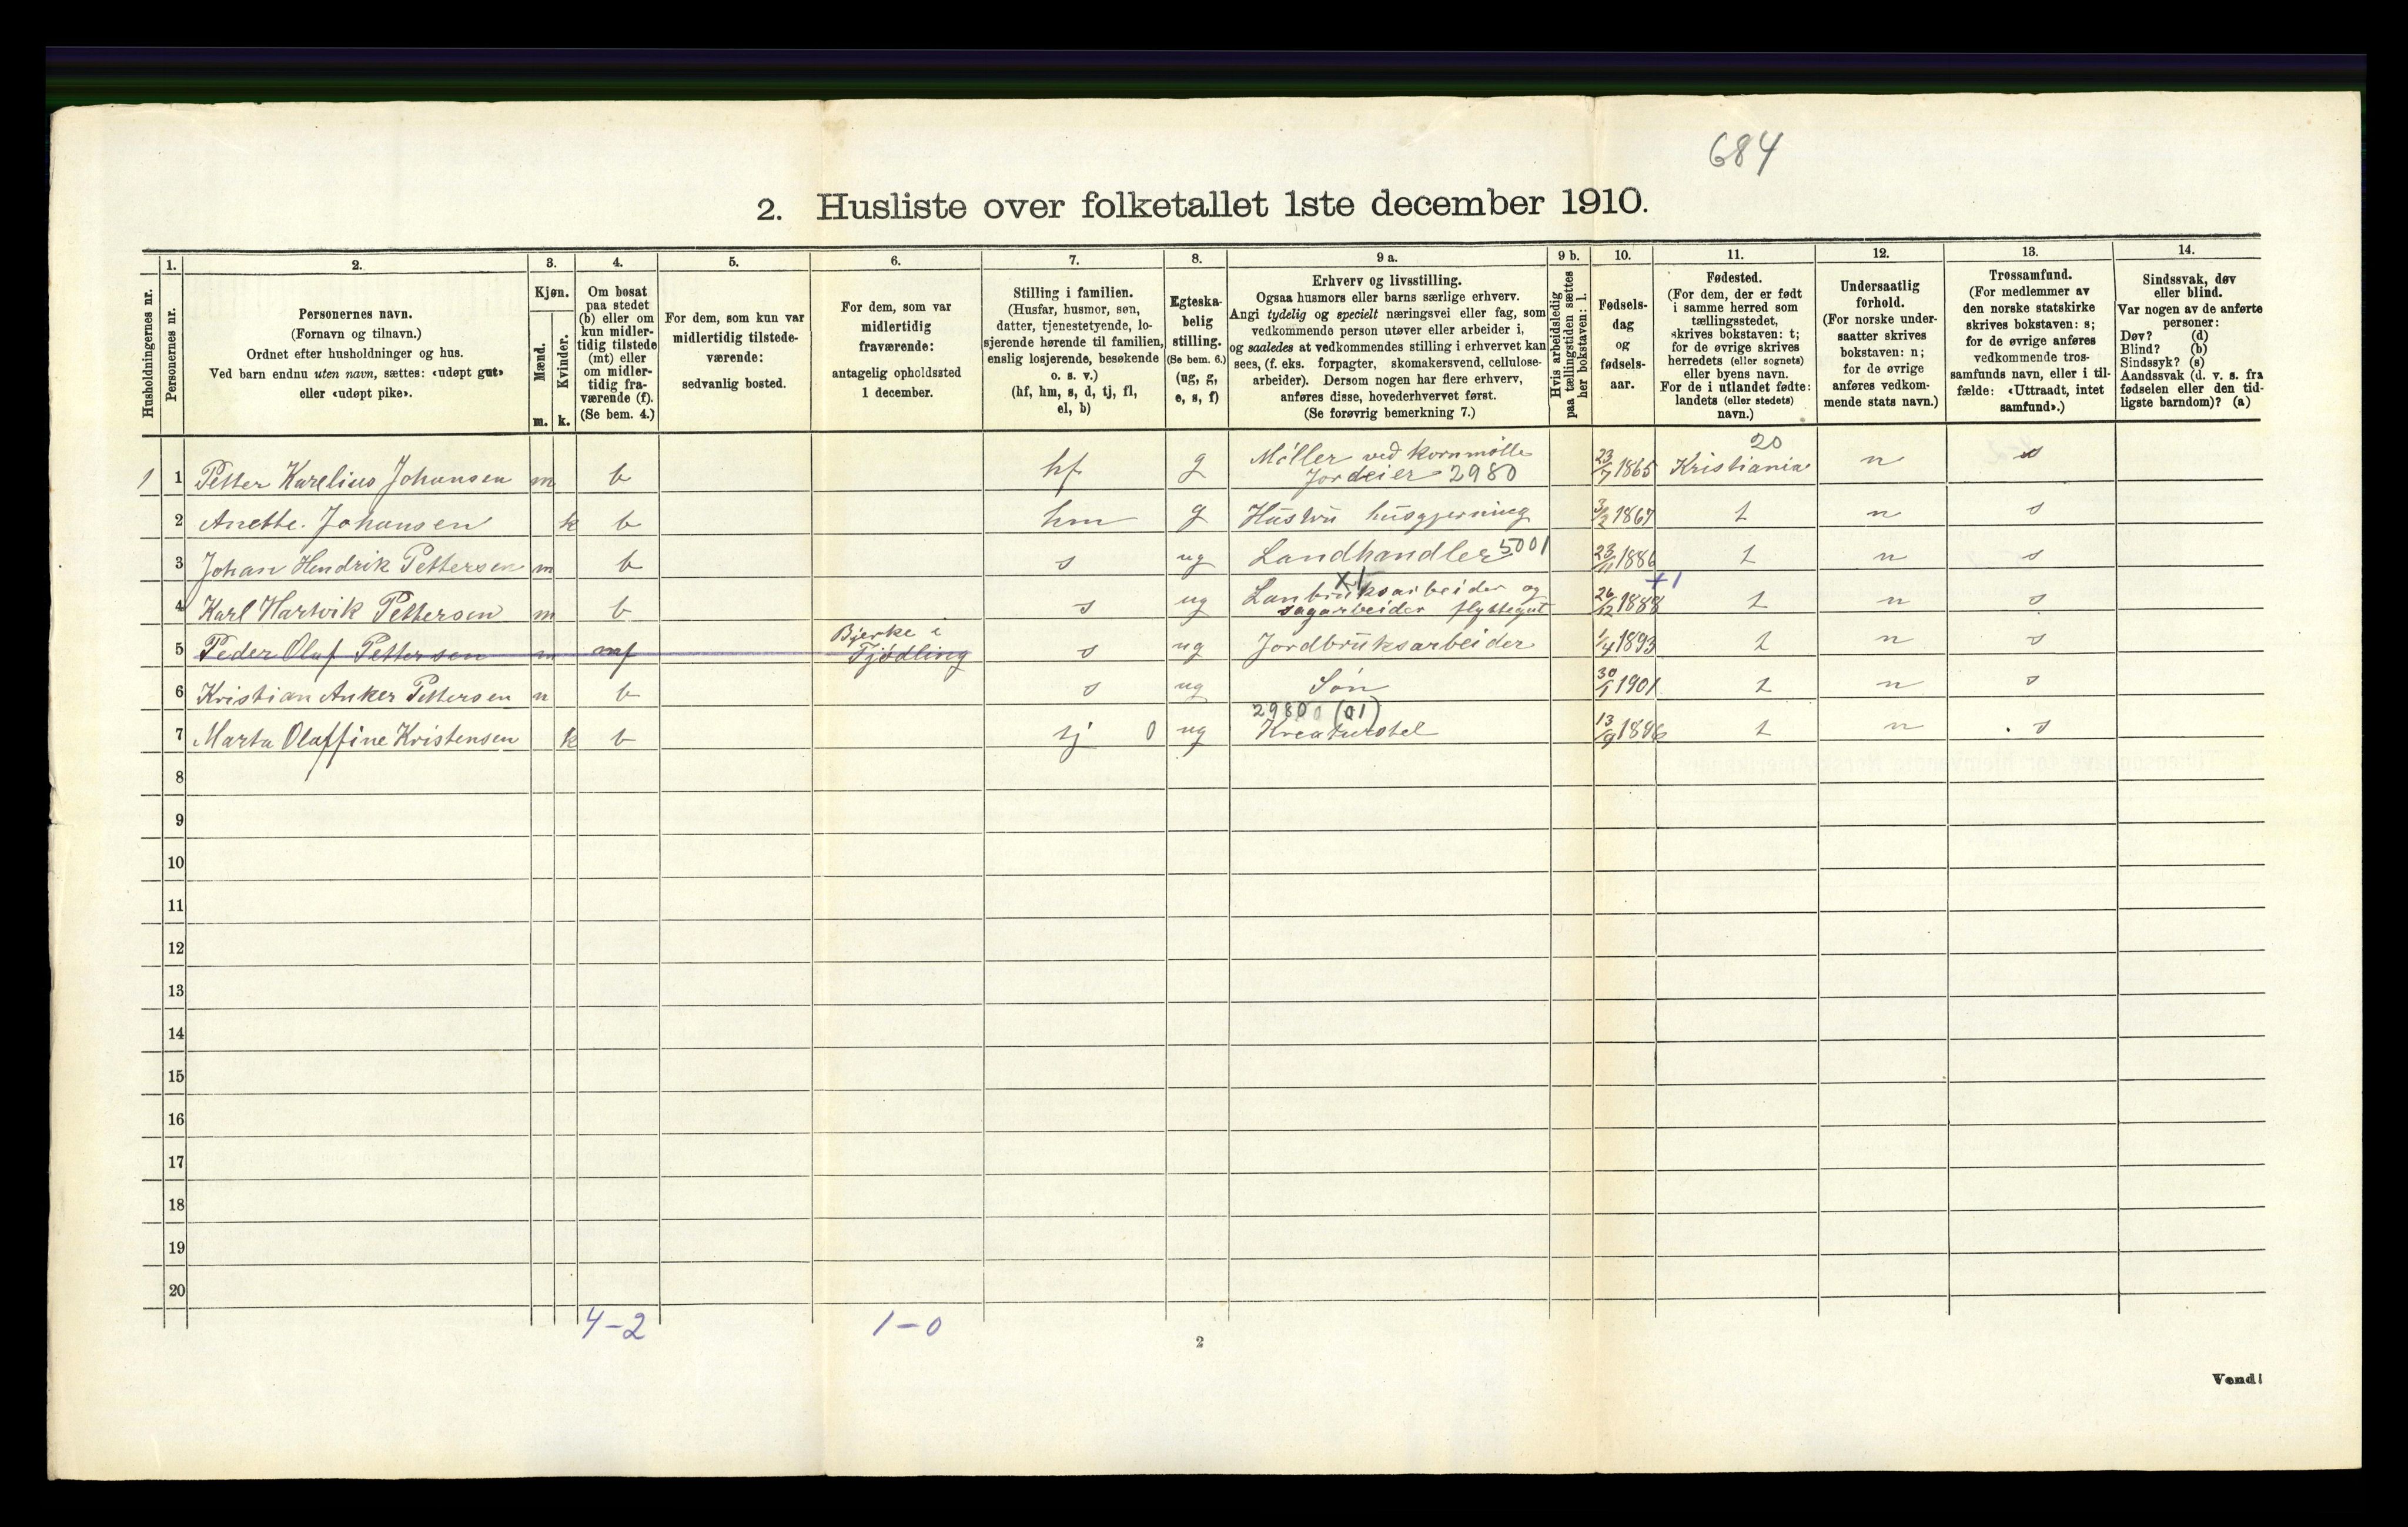 684
2. Husliste over folketallet 1ste december 1910.
Husholdningernes nr.
1.
Personernes nr.
2.
Personernes navn.
(Fornavn og tilnavn.)
Ordnet efter husholdninger og hus.
Ved barn endnu uten navn, sættes: «udøpt gut»
eller «udøpt pike».
3.
Kjøn.
Mænd.
Kvinder.
m. k.
4.
Om bosat
paa stedet
(b) eller om
kun midler-
tidig tilstede
(mt) eller
om midler-
tidig fra-
værende (f).
(Se bem. 4.)
5.
For dem, som kun var
midlertidig tilstede-
værende:
sedvanlig bosted.
6.
For dem, som var
midlertidig
fraværende:
antagelig opholdssted
1 december.
7.
Stilling i familien.
(Husfar, husmor, søn,
datter, tjenestetyende, lo-
sjerende hørende til familien,
enslig losjerende, besøkende
o. s. v.)
(hf, hm, s, d, tj, fl,
el, b)
8.
Egteska-
belig
stilling.
(Se bem. 6.)
(ug, g,
e, s, f)
9 a.
Erhverv og livsstilling.
Ogsaa husmors eller barns særlige erhverv.
Angi tydelig og specielt næringsvei eller fag, som
vedkommende person utøver eller arbeider i,
og saaledes at vedkommendes stilling i erhvervet kan
sees, (f. eks. forpagter, skomakersvend, cellulose-
arbeider). Dersom nogen har flere erhverv,
anføres disse, hovederhvervet først.
(Se forøvrig bemerkning 7.)
9 b.
Hvis arbeidsledig
paa tællingstiden sættes
her bokstaven: l.
10.
Fødsels-
dag
og
fødsels-
aar.
11.
Fødested.
(For dem, der er født
i samme herred som
tællingsstedet,
skrives bokstaven: t;
for de øvrige skrives
herredets (eller sognets)
eller byens navn.
For de i utlandet fødte:
landets (eller stedets)
navn.)
12.
Undersaatlig
forhold.
(For norske under-
saatter skrives
bokstaven: n;
for de øvrige
anføres vedkom-
mende stats navn.)
13.
Trossamfund.
(For medlemmer av
den norske statskirke
skrives bokstaven: s;
for de øvrige anføres
vedkommende tros-
samfunds navn, eller i til-
fælde: «Uttraadt, intet
samfund».)
14.
Sindssvak, døv
eller blind.
Var nogen av de anførte
personer:
Døv? (d)
Blind? (b)
Sindssyk? (s)
Aandssvak (d. v. s. fra
fødselen eller den tid-
ligste barndom)? (a)
1 1 Petter Karelius Johansen m b hf g Møller ved kornmølle Jordeier 2980 23/7 1865 20 Kristiania n s
2 Anette. Johansen k b hm g Hustru husgjerning 3/2 1867 t n s
3 Johan Hendrik Pettersen m b s ug Landhandler 5001 23/11 1886 t n s
4 Karl Hartvik Pettersen m b s ug Lanbruksarbeider og sagarbeider flyttegut x1 26/12 1888 +1 t n s
5 Peder Olaf Pettersen m mf Bjerke i Tjødling s ug Jordbruksarbeider 1/4 1893 t n s
6 Kristian Anker Pettersen m b s ug Søn 30/1 1901 t n s
7 Marta Olaffine Kristensen k b tj 0 ug 2980 0 (01) Kreaturstel 13/9 1896 t n s
8
9
10
11
12
13
14
15
16
17
18
19
20
4-2 1-0
2
Vend!